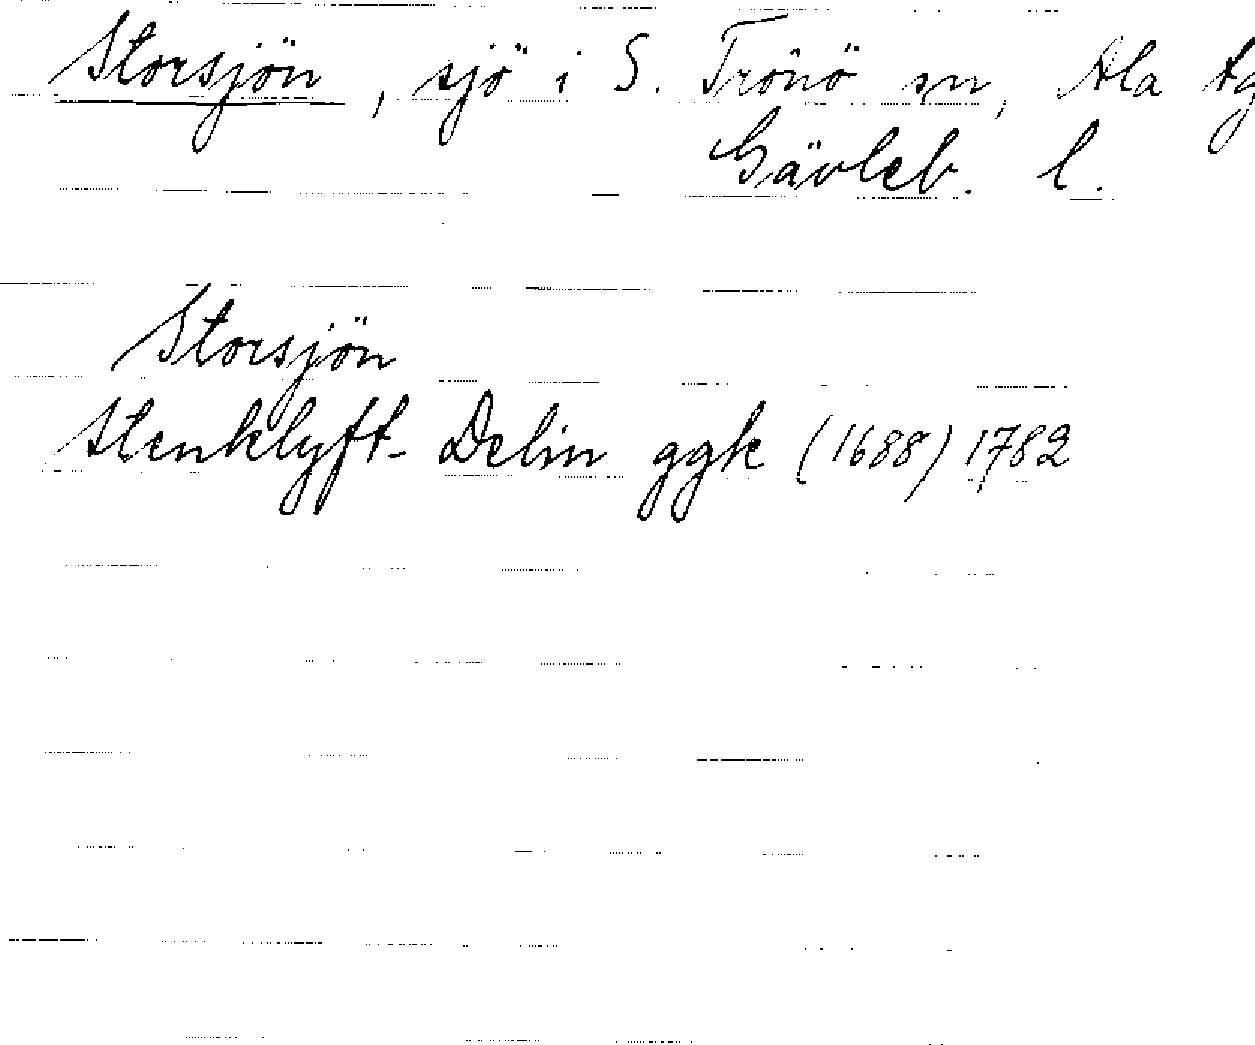 Storsjön, sjö i S. Trönö sn, Ala tg
Gävleb. l.
Storsjön
Stenklyft- Delin ggk (1688) 1782